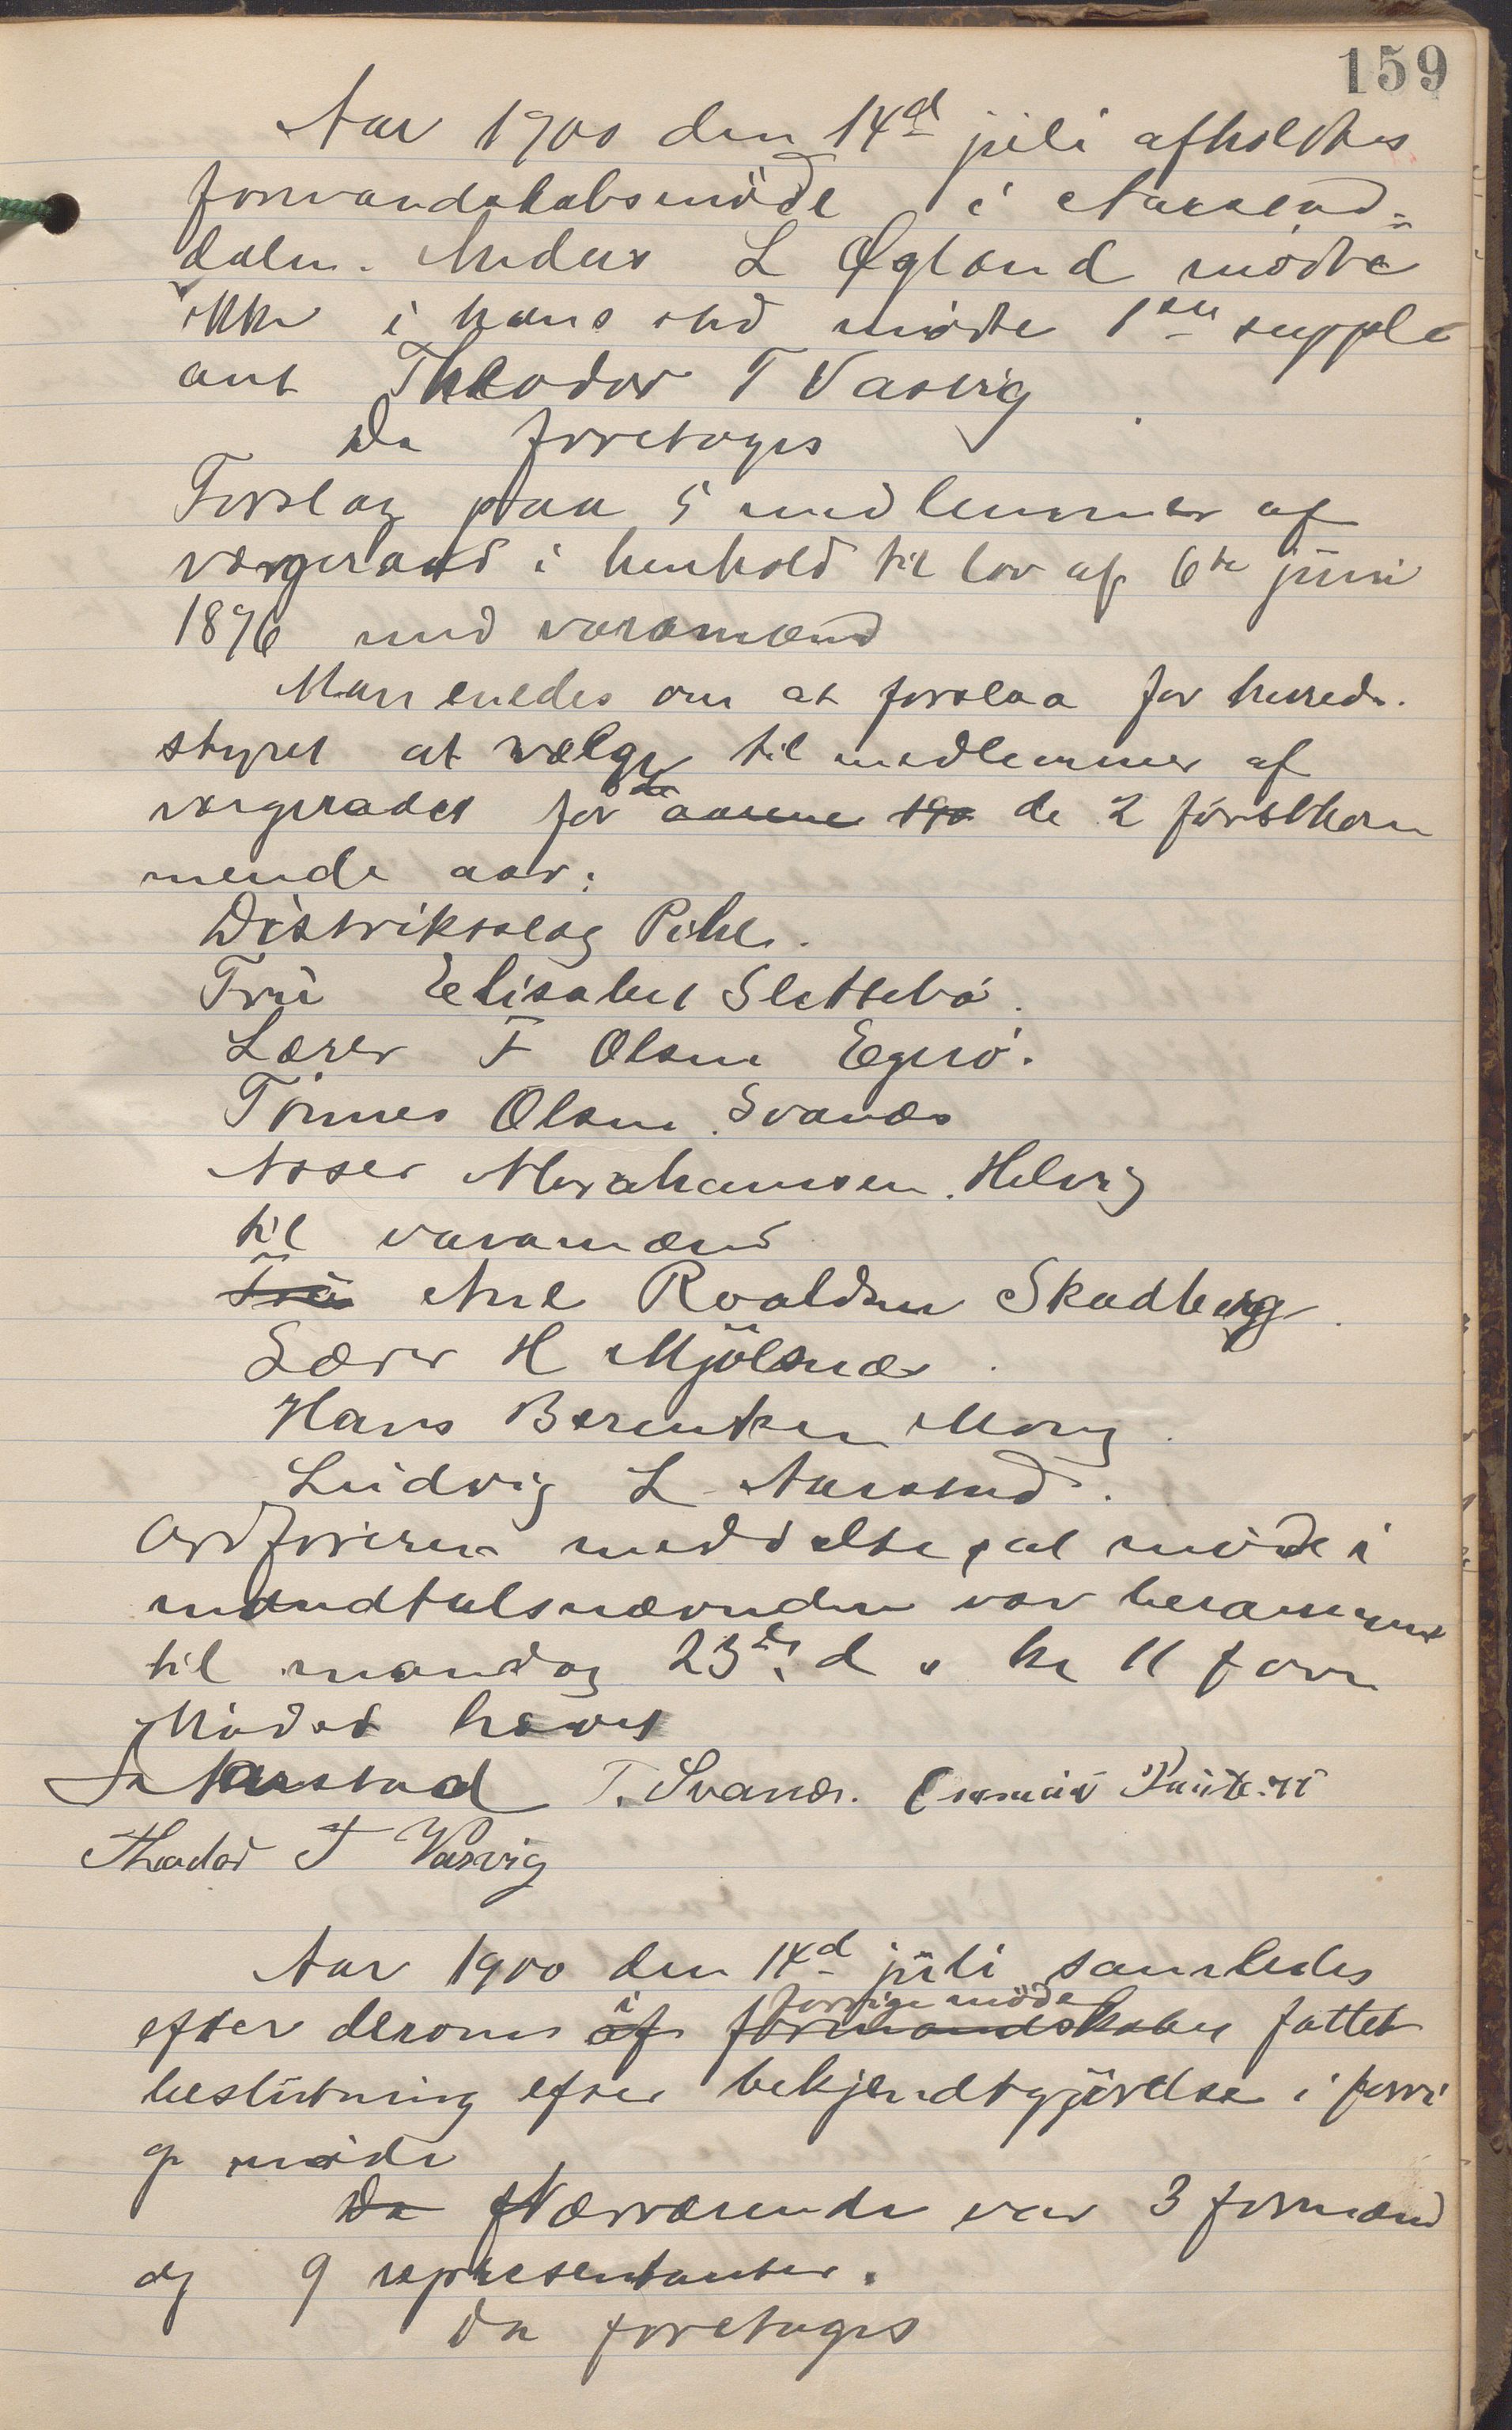 159
Aar 1900 den 14d juli afholdtes
formandskabsmöde i Aarstad=
dalen. Anders L Øgland mødte
ikke i hans sted mødte 1ste supple
ant Theodor T Vasvig
Da foretoges
Forslag paa 5 medlemmer af
vergeraad i henhold til lov af 6te juni
1896 med varamænd
Man enedes om at forslaa for herreds.
styret at vælge til medlemmer af
vergeradet for aarene 190 de 2 förstkom
mende aar:
Distrikslæg Pihl.
Frü Elisabet Slettebö.
Lærer F Olsen Egerö.
Tönnes Olsen Svanæs
Aser Abrahamsen. Helvig
til varamænd
Frü Ane Roaldsen Skadberg
Lærer H Mjölsnæs.
Hans Berentsen Mong.
Ludvig L Aarstad.
Ordföreren meddelte, at möde i
mandtalsnævnden var berammet
til mandag 23de d. kl 11 form
Mödet hævet
Aarstad T. Svanæs.
Theodor T Vasvig
Aar 1900 den 14d juli samledes
forrige möde
efter derom i af formandskabet fattet
beslütning efter bekjendtgjörelse i forri
ge möde
Da Nærværende var 3 formænd
og 9 representanter.
Da foretoges